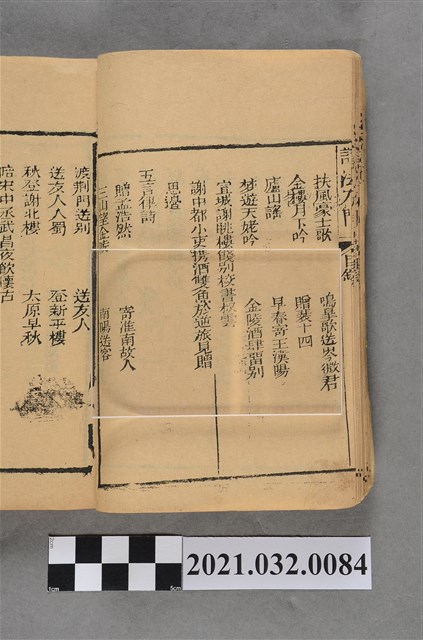 詩法入門
目錄
扶風豪士歌 鳴皋歌送岑徵君
金陵月下吟 贈裴十四
廬山謠 早春寄王漢陽
夢遊天姥吟 金陵酒肆留別
宣城謝眺樓餞別校書叔雲
謝中都小吏攜酒雙魚於逆旅見贈
思邊
五言律詩
贈孟浩然 寄淮南故人
南陽送客
渡荆門送別 送友人
送友人入蜀 登新平樓
秋登謝北樓 太原早秋
陪宋中丞武昌夜飲懷古
1cm
5cm
2021.032.0084